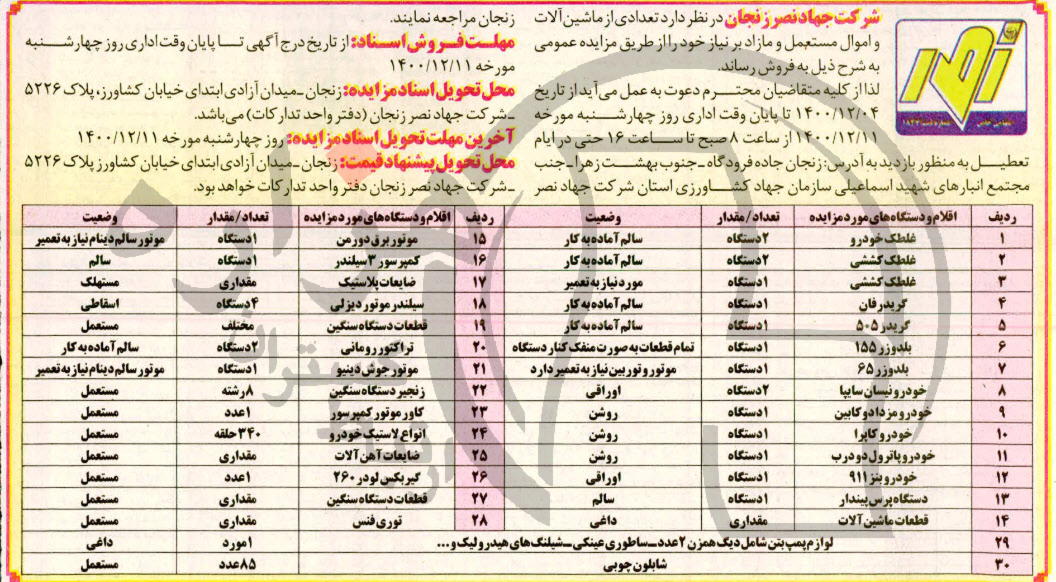 شرکت جهاد نصر زنجان در نظر دارد تعدادی از ماشین آلات
و اموال مستعمل و مازاد بر نیاز خود را از طریق مزایده عمومی
به شرح ذیل به فروش رساند.
لذا از کلیه متقاضیان محترم دعوت به عمل می آید از تاریخ
۱۴۰۰/۱۲/۰۴ تا پایان وقت اداری روز چهارشنبه مورخه
۱۴۰۰/۱۲/۱۱ از ساعت ۸ صبح تا ساعت ۱۶ حتی در ایام
تعطیل به منظور بازدید به آدرس: زنجان جاده فرودگاه ـ جنوب بهشت زهرا ـ جنب
مجتمع انبارهای شهید اسماعیلی سازمان جهاد کشاورزی استان شرکت جهاد نصر
زنجان مراجعه نمایند.
مهلت فروش اسناد: از تاریخ درج آگهی تا پایان وقت اداری روز چهارشنبه
مورخه ۱۴۰۰/۱۲/۱۱
محل تحویل اسناد مزایده: زنجان ـ میدان آزادی ابتدای خیابان کشاورز، پلاک ۵۲۲۶
ـ شرکت جهاد نصر زنجان (دفتر واحد تدارکات) می باشد.
آخرین مهلت تحویل اسناد مزایده: روز چهارشنبه مورخه ۱۴۰۰/۱۲/۱۱
محل تحویل پیشنهاد قیمت: زنجان ـ میدان آزادی ابتدای خیابان کشاورز پلاک ۵۲۲۶
ـ شرکت جهاد نصر زنجان دفتر واحد تدارکات خواهد بود.
ردیف اقلام و دستگاه های مورد مزایده تعداد/مقدار وضعیت ردیف اقلام و دستگاه های مورد مزایده تعداد/مقدار وضعیت
۱ غلطک خودرو ۲دستگاه سالم آماده به کار ۱۵ موتور برق دورمن ۱دستگاه موتور سالم دینام نیاز به تعمیر
۲ غلطک کششی ۲دستگاه سالم آماده به کار ۱۶ کمپرسور ۳ سیلندر ۱دستگاه سالم
۳ غلطک کششی ۱دستگاه مورد نیاز به تعمیر ۱۷ ضایعات پلاستیک مقداری مستهلک
۴ گریدر فان ۱دستگاه سالم آماده به کار ۱۸ سیلندر موتور دیزلی ۴دستگاه اسقاطی
۵ گریدر ۵۰۵ ۱دستگاه سالم آماده به کار ۱۹ قطعات دستگاه سنگین مختلف مستعمل
۶ بلدوزر ۱۵۵ ۱دستگاه تمام قطعات به صورت منفک کنار دستگاه ۲۰ تراکتور رومانی ۲دستگاه سالم آماده به کار
۷ بلدوزر ۶۵ ۱دستگاه موتور و توربین نیاز به تعمیر دارد ۲۱ موتور جوش دینیو ۱دستگاه موتور سالم دینام نیاز به تعمیر
۸ خودرو نیسان سایپا ۲دستگاه اوراقی ۲۲ زنجیر دستگاه سنگین ۸رشته مستعمل
۹ خودرو مزدا دو کابین ۱دستگاه روشن ۲۳ کاور موتور کمپرسور ۱عدد مستعمل
۱۰ خودرو کاپرا ۱دستگاه روشن ۲۴ انواع لاستیک خودرو ۳۴۰حلقه مستعمل
۱۱ خودرو پاترول دو درب ۱دستگاه روشن ۲۵ ضایعات آهن آلات مقداری مستعمل
۱۲ خودرو بنز ۹۱۱ ۱دستگاه اوراقی ۲۶ گیربکس لودر ۲۶۰ ۱عدد مستعمل
۱۳ دستگاه پرس پیندار ۱دستگاه سالم ۲۷ قطعات دستگاه سنگین مقداری مستعمل
۱۴ قطعات ماشین آلات مقداری داغی ۲۸ توری فنس مقداری مستعمل
۲۹ لوازم پمپ بتن شامل دیگ همزن ۲عدد ـ ساطوری عینکی ـ شیلنگ های هیدرولیک و... ۱مورد داغی
۳۰ شابلون چوبی ۸۵عدد مستعمل